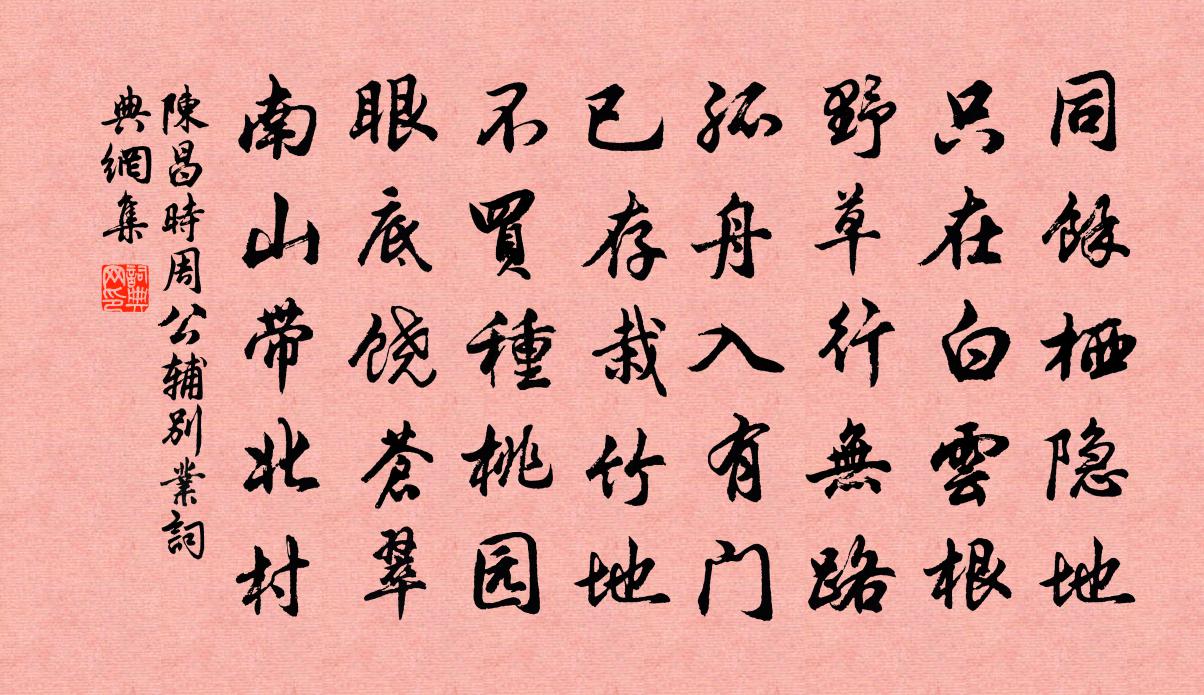 同餘栖隐地
只在白雲根
野草行無路
孤舟入有门
已存栽竹地
不買種桃园
眼底饶蒼翠
南山带北村
陳昌時周公辅别業詞
典網集
詞典
网印